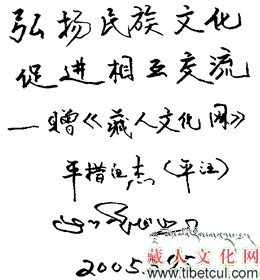 弘扬民族文化
促进相互交流
—赠《藏人文化网》
平措汪杰（平汪）
2005.
藏人文化网
www.tibetcul.com